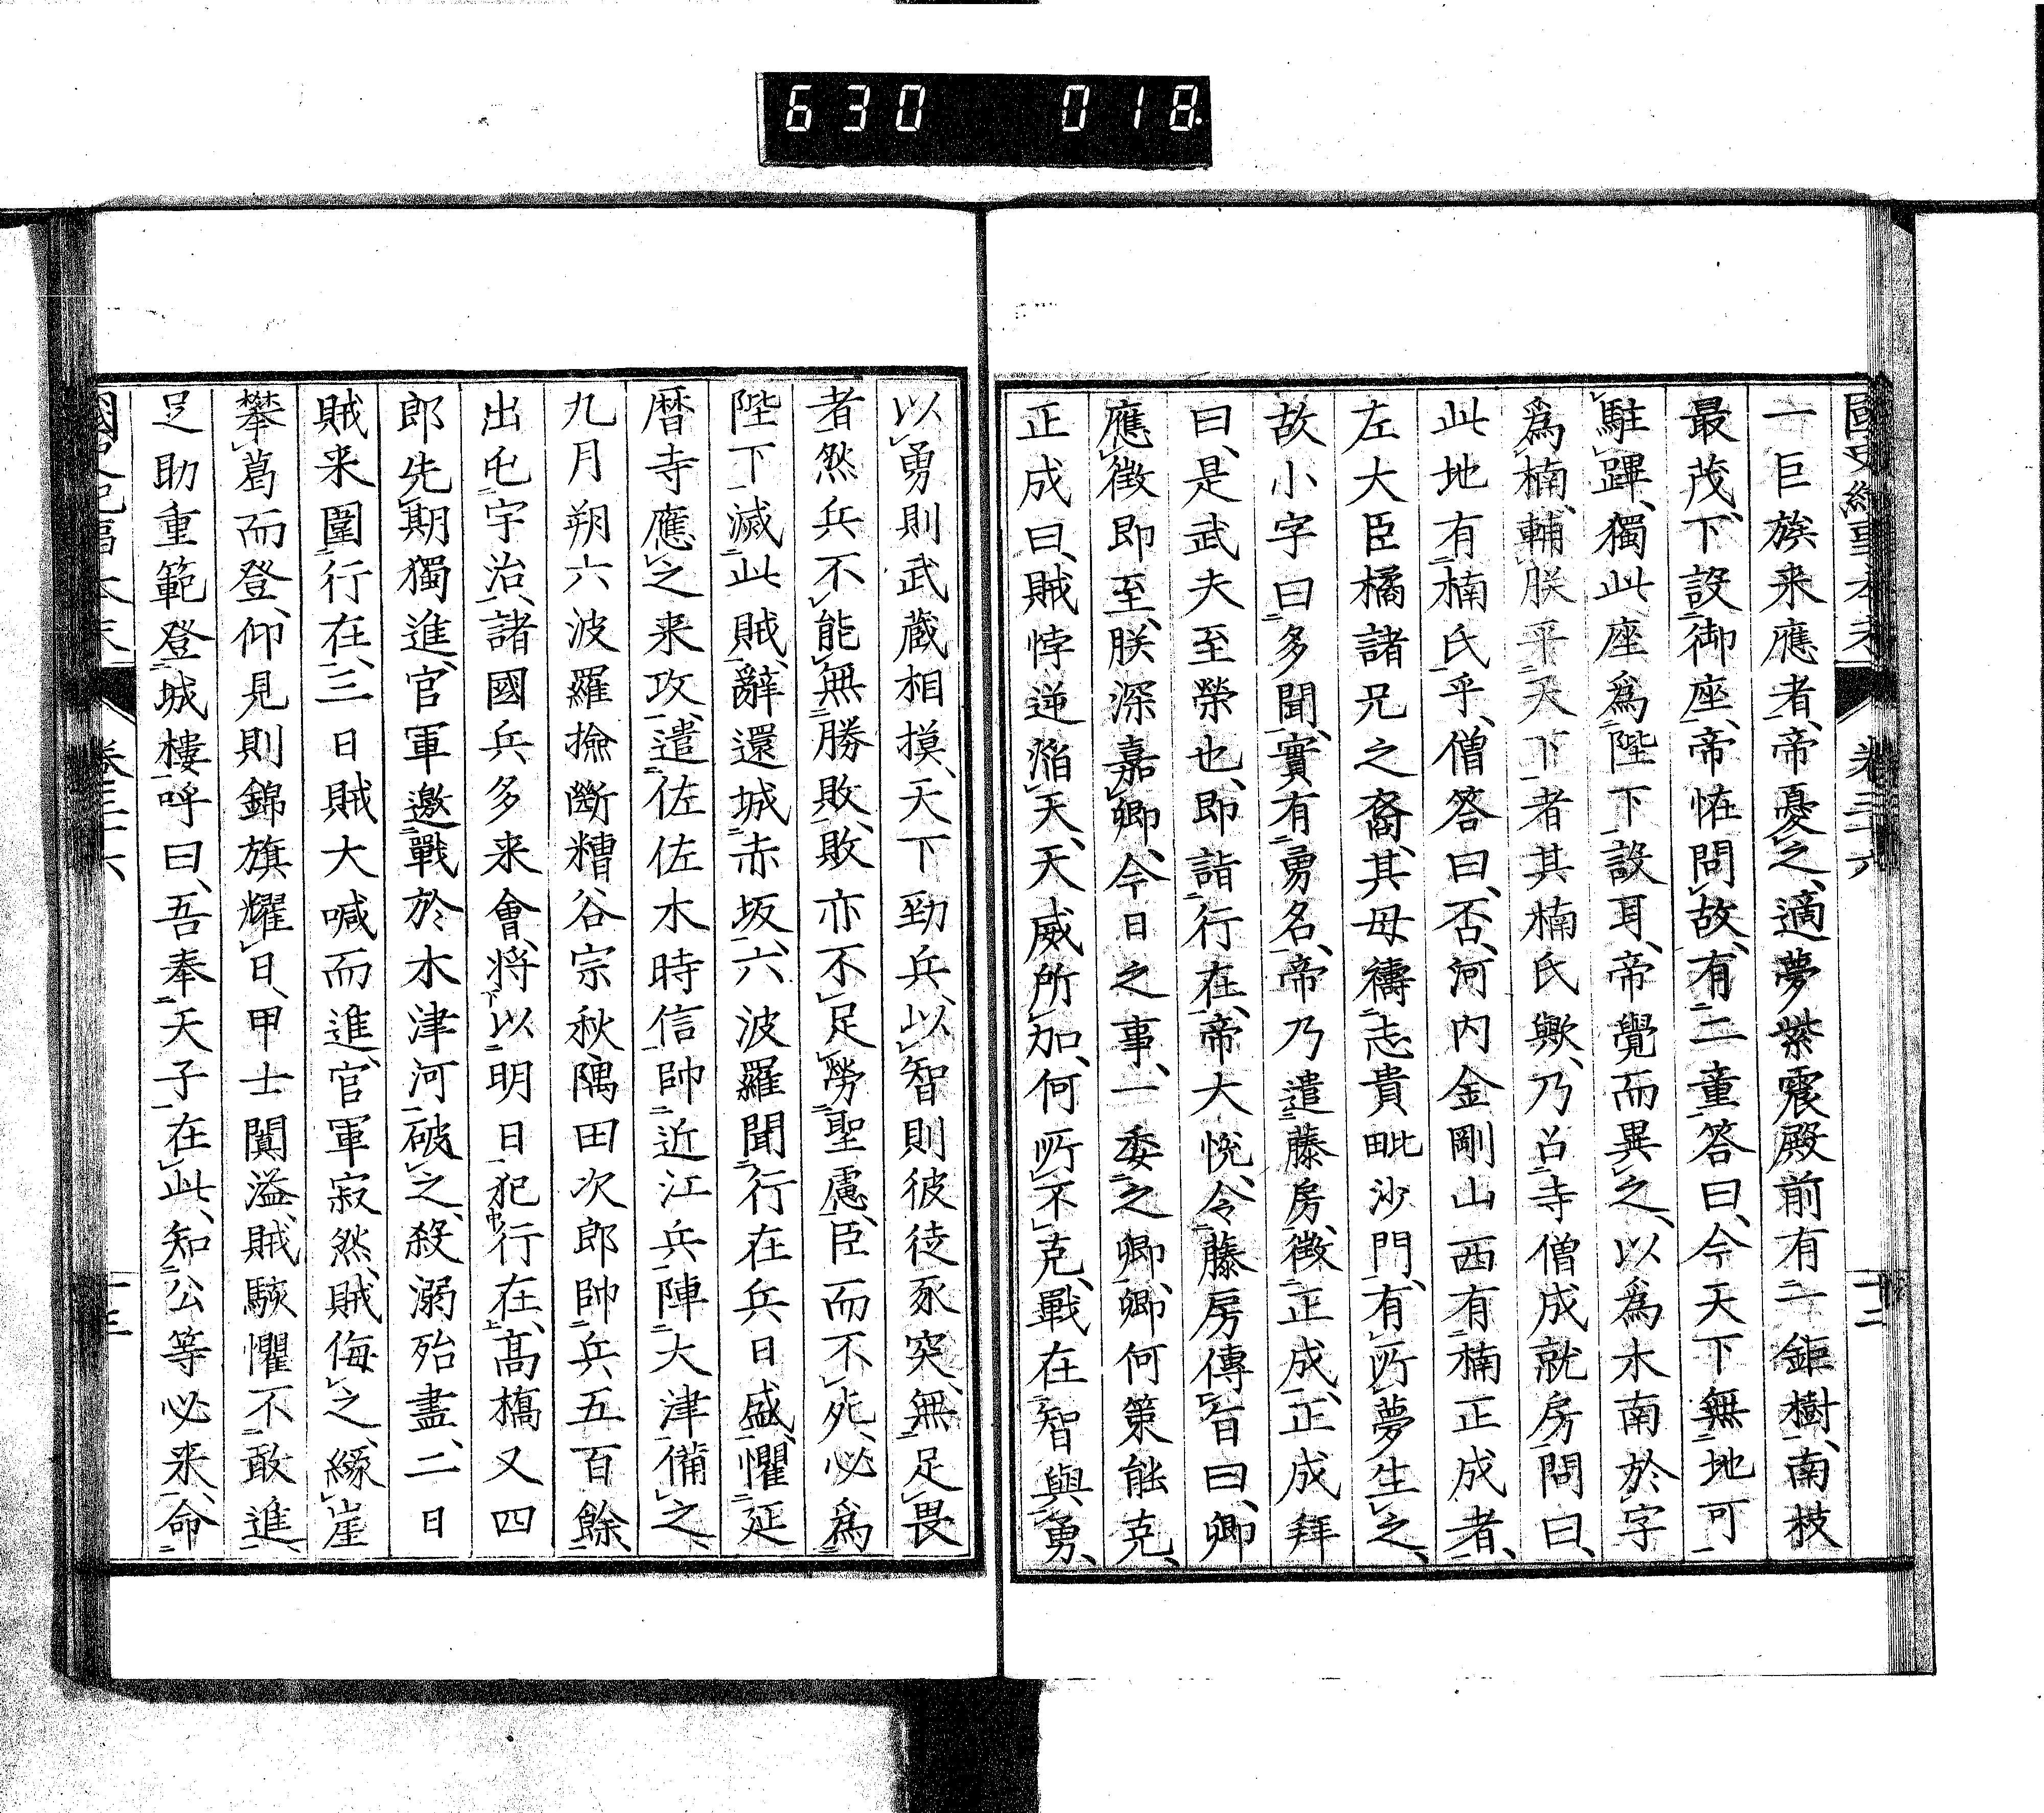 630 018
一巨族来應者、帝憂之、適夢紫宸殿前有一鉅樹、南枝
最茂、下設御座、帝恠問故、有二童答曰、今天下無地可
駐蹕、獨此座爲陛下設耳、帝覺而異之、以爲木南於字
爲楠、輔朕平天下者其楠氏歟、乃召寺僧成就房問曰、
此地有楠氏乎、僧答曰、否、河内金剛山西有楠正成者、
左大臣橘諸兄之裔、其母禱志貴毗沙門、有所夢生之、
故小字曰多聞、實有勇名、帝乃遣藤房、徴正成、正成拜
曰、是武夫至榮也、即詣行在、帝大悦、令藤房傳旨曰、卿
應徴即至、朕深嘉卿、今日之事、一委之卿、卿何策能克、
正成曰、賊悖逆滔天、天威所加、何所不克、戰在智與勇、
以勇則武蔵相摸、天下勁兵、以智則彼徒豕突、無足畏
者然兵不能無勝敗、敗亦不足勞聖慮、臣而不死、必爲
陛下滅此賊、辭還城赤坂、六波羅聞行在兵日盛、懼延
暦寺應之来攻、遣佐佐木時信帥近江兵、陣大津備之、
九月朔六波羅撿斷糟谷宗秋隅田次郎帥兵五百餘、
出屯宇治、諸國兵多来會、将以明日犯行在、髙橋又四
郎先期獨進、官軍邀戰於木津河破之、殺溺殆盡、二日
賊来圍行在、三日賊大喊而進、官軍寂然、賊侮之、緣崖
攀葛而登、仰見則錦旗耀日、甲士闐溢、賊駭懼不敢進、
足助重範登城樓呼曰、吾奉天子在此、知公等必来、命
卷三十六